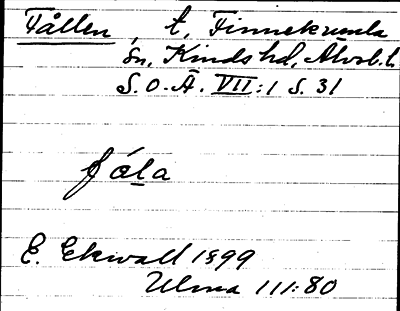 Fållen, t, Finnekumla
sn, Kinds hd, Älvsb. l.
S. O. Ä. VII:1 S. 31
fóla
E. Ekwall 1899
Ulma 111:80